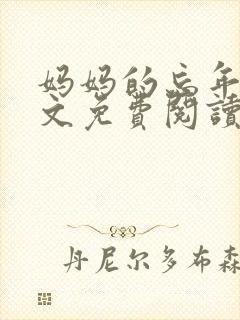 妈妈的忘年
文免费閱讀
丹尼尔多布森